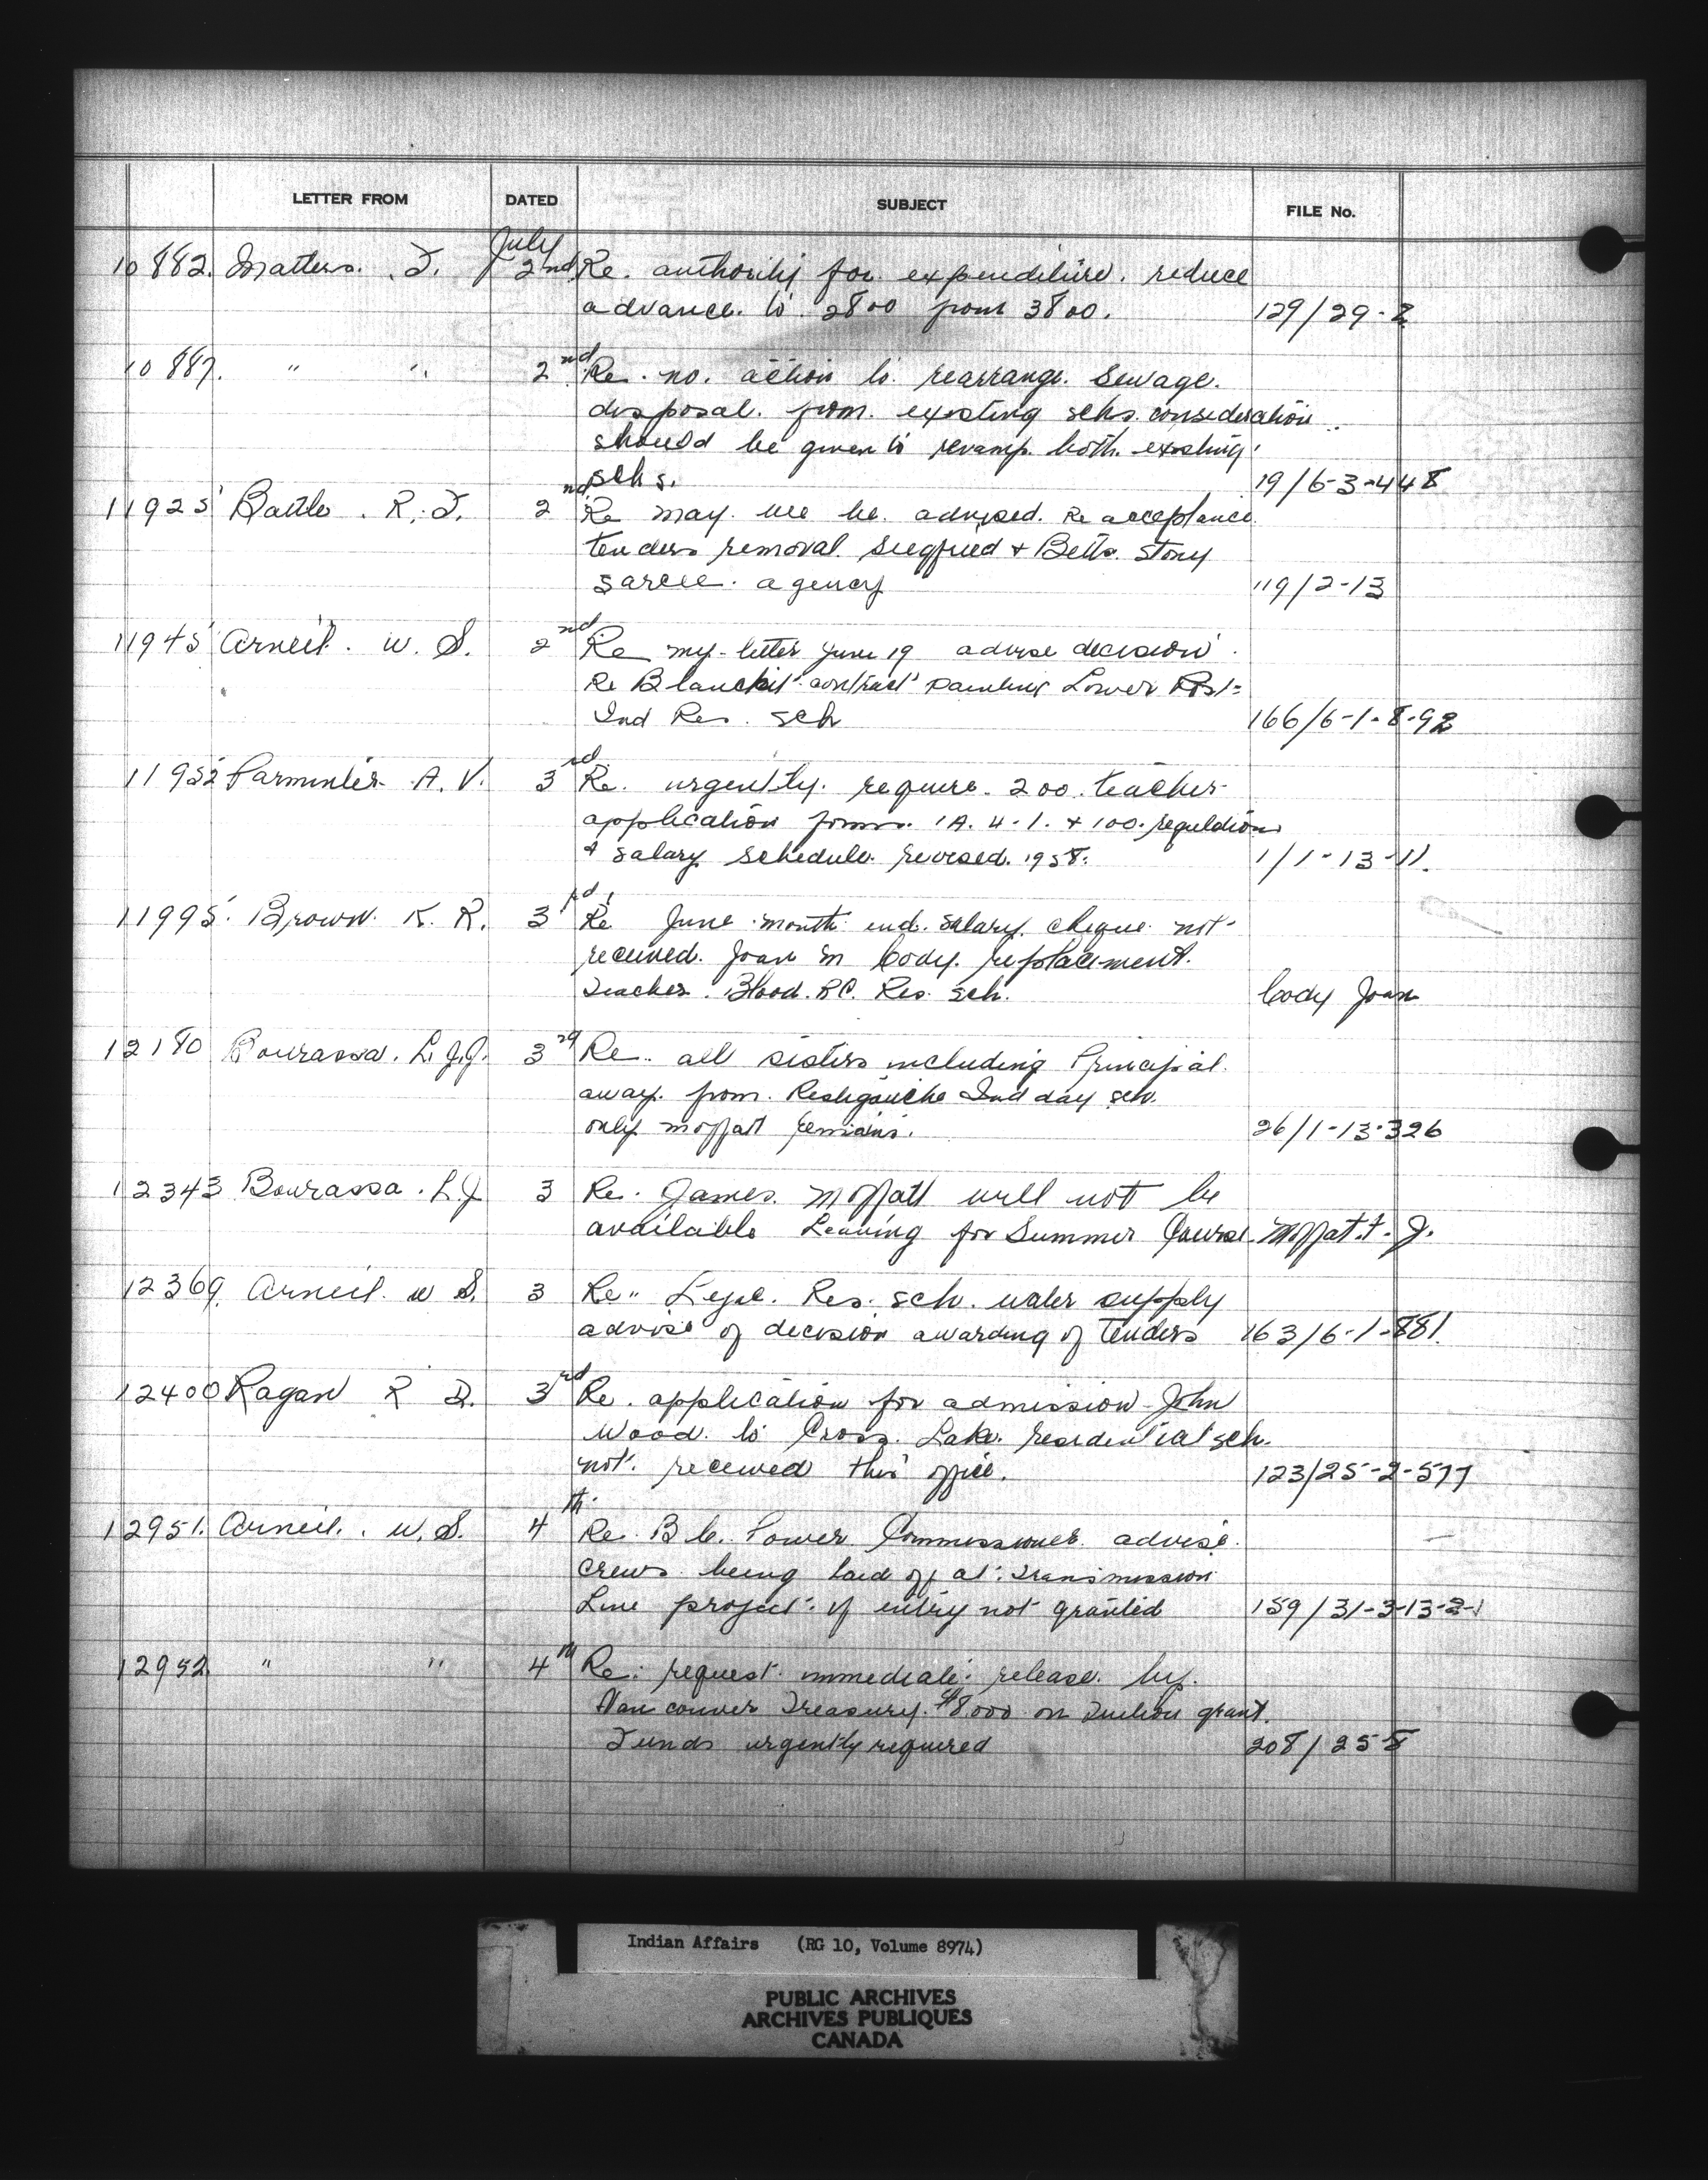 LETTER FROM DATED SUBJECT FILE No.
July
10882. Matters. J. 2nd Re. authority for expenditure. reduce
advance. to 2800 from 3800. 129/29-2
10887. " " 2nd Re. no. action to rearrange. Sewage.
disposal. from. existing schs. consideration
should be given to revamp. both. existing
schs. 19/6-3-448
11925 Battle. R. J. 2nd Re may we be. advised. Re acceptance
tenders removal. Siegfried & Betts. Stony
Sarcee. agency 119/2-13
11945 Arneil. W. S. 2nd Re my letter June 19 advise decision
Re contract painting Lower Post
Ind Res. sch 166/6-1-8-92
11952 Parminter A. V. 3rd Re. urgently. require. 200. teacher
application forms. 1A. 4-1. & 100. regulations
& salary schedule. revised. 1958. 1/1-13-11.
11995. Brown. K. R. 3rd Re June month end. salary. cheque not
received. Joan M Cody. replacement.
Teacher. Blood. R.C. Res. sch. Cody Joan
12180 Bourassa. L. J.J. 3rd Re. all sisters including Principal.
away. from. Restigouche Ind day sch.
only moffatt remains. 26/1-13-326
12343 Bourassa. L.J 3 Re. James. Moffatt will not be
available Leaving for Summer Course. Moffatt. J.
12369. Arneil. W S. 3 Re" Lejac. Res. sch. water supply
advise of decision awarding of tenders 163/6-1-881.
12400 Ragan R D. 3rd Re. application for admission John
Wood. to Cross. Lake. residential sch.
not. received this office. 123/25-2-577
12951. Arneil. W. S. 4th Re. B.C. Power Commissioner advise.
crews being laid off at. Transmission
Line project. if entry not granted 159/31-3-13-2-1
12952. " " 4th Re. request immediate release. by.
Vancouver Treasury. $8,000 on Tuition grant.
Funds urgently required 208/25-8
Indian Affairs (RG 10, Volume 8974)
PUBLIC ARCHIVES
ARCHIVES PUBLIQUES
CANADA